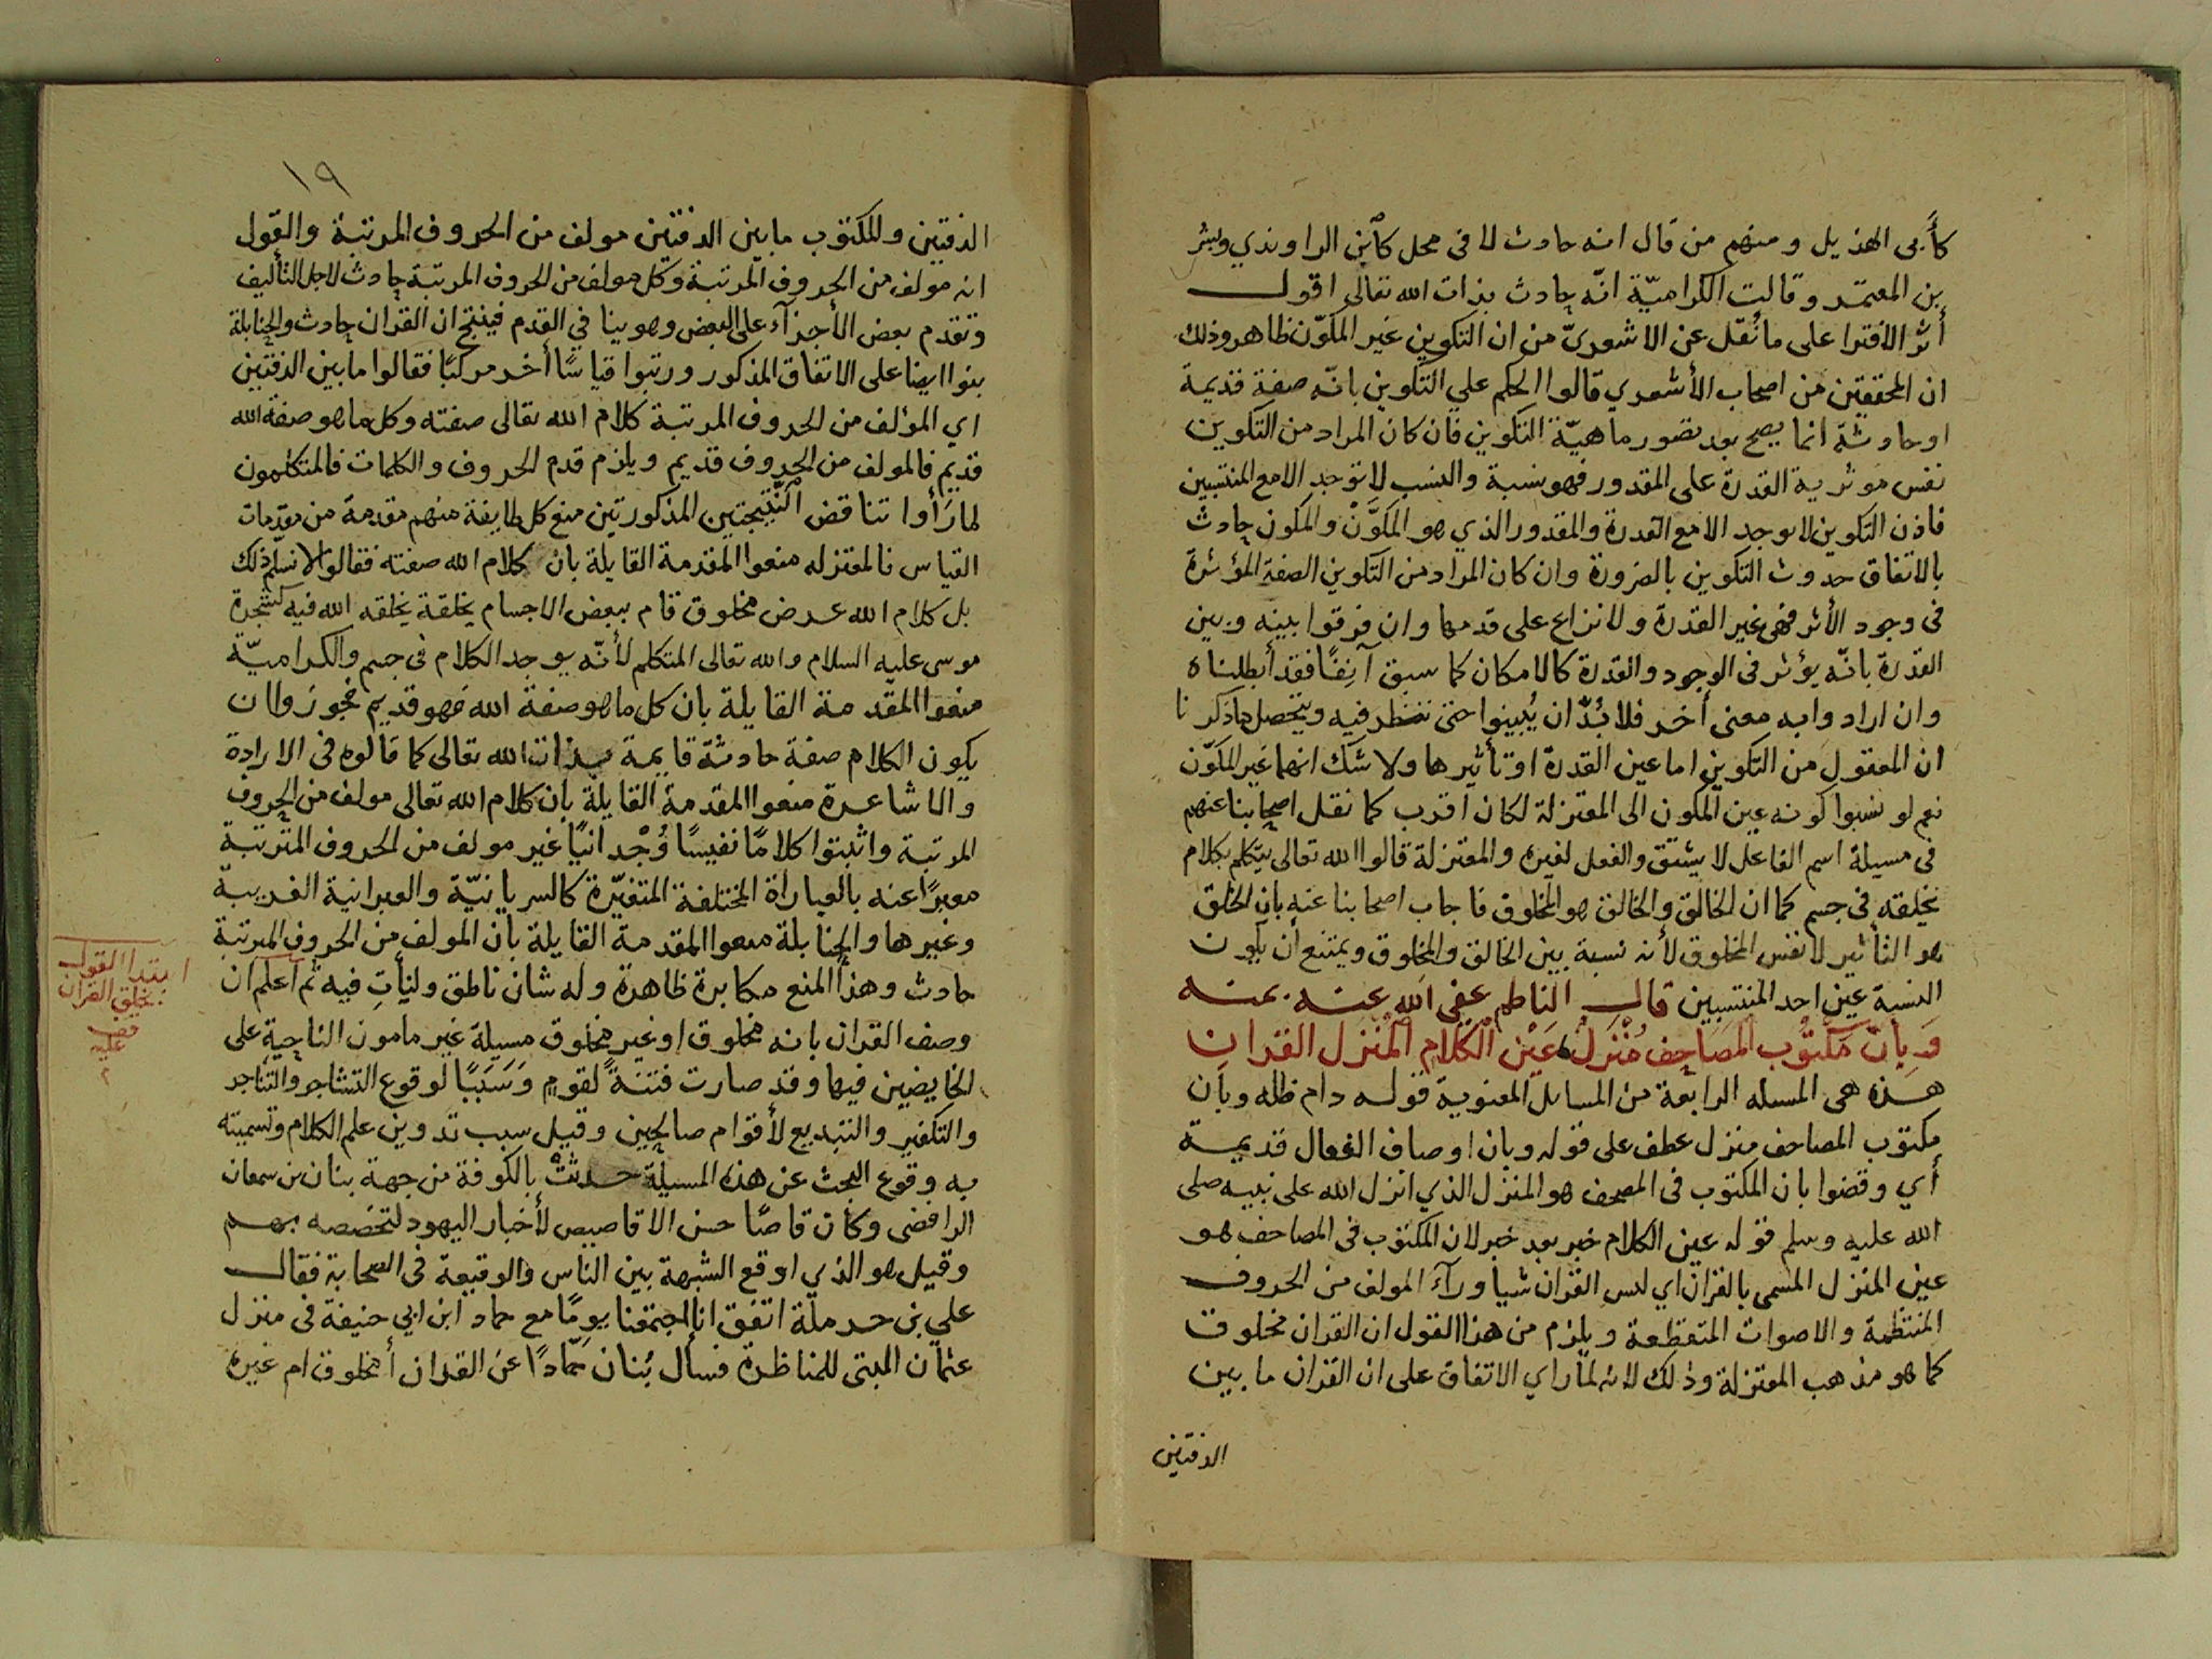 كأبى الهذيل ومنهم من قال انه حادث لا فى محل كابن الراوندي وبشر
بن المعتمر وقالت الكراميّة انّه حادث بذات الله تعالى اقول
أثر الافترا على ما نُقل عن الاشعريّ من ان التكوين غير المكوّن ظاهر وذلك
ان المحققين من اصحاب الأشعري قالوا الحكم علي التكوين بانّه صفة قديمة
او حادثة انما يصح بعد تصور ماهيّة التكوين فان كان المراد من التكوين
نفس مؤثرية القدرة على المقدور فهو نسبة والنسب لا توجد الا مع المنتسبين
فاذن التكوين لا يوجد الا مع القدرة والمقدور الذي هو المكوَّن والمكون حادث
بالاتفاق حدوث التكوين بالضرورة وان كان المراد من التكوين الصفة المؤثرة
فى وجود الأثر فهى غير القدرة ولا نزاع على قدمها وان فرقوا بينه وبين
القدرة بانّه يؤثر فى الوجود والقدرة كالامكان كما سبق آنِفًا فقد أبطلناه
وان ارادوا به معنى أخر فلا بُدّ ان يُبينوا حتى ننظر فيه ويتحصل ما ذكرنا
ان المعقول من التكوين اما عين القدرة او تأثيرها ولا شك انهما غير المكوّن
نعم لو نسبوا كونه عين المكون الى المعتزلة لكان اقرب كما نقل اصحابنا عنهم
فى مسيلة اسم الفاعل لا يشتق والفعل لغيره والمعتزلة قالوا الله تعالى يتكلم بكلام
يخلقه فى جسم كما ان الخالق والخالق هو المخلوق فاجاب اصحابنا عنه بان الخلق
هو التأثير لا نفس المخلوق لأنه نسبة بين الخالق والمخلوق ويمتنع أن يكون
النسبة عين احد المنتسبين قال الناظم عفى الله عنه بمنه
وَبِأنّ مكتُوب المَصَاحِف مُنْزَلٌ عَيْن الكَلَام المُنزل القران
هذه هى المسله الرابعة من المسايل المعنوية قوله دام ظله وبان
مكتوب المصاحف منزل عطف على قوله وبان اوصاف الفعال قديمة
أي وقضوا بان المكتوب فى المصحف هو المنزل الذي انزل الله على نبيه صلى
الله عليه وسلم قوله عين الكلام خبر بعد خبر لان المكتوب فى المصاحف هو
عين المنزل المسمى بالقران اي لس القران شيا ورآء المولف من الحروف
المنتظمة والاصوات المتقطعة ويلزم من هذا القول ان القران مخلوق
كما هو مذهب المعتزلة وذلك لانه لما راي الاتفاق على ان القران ما بين
الدفتين
١٩
الدفتين والمكتوب ما بين الدفتين مولف من الحروف المرتبة والقول
انه مولف من الحروف المرتبة وكل مولف من الحروف المرتبة حادث لاجل التأليف
وتقدم بعض الأجزآء على البعض وهو ينا في القدم فينتج ان القران حادث والحنابلة
بنوا ايضا على الاتفاق المذكور ورتبوا قياسًا أخر مركبًا فقالوا ما بين الدفتين
اي المؤلف من الحروف المرتبة كلام الله تعالى صفته وكل ما هو صفة الله
قديم فالمولف من الحروف قديم ويلزم قدم الحروف والكلمات فالمتكلمون
لما رَأوا تناقض النّتيجتين المذكورتين منع كل طايفة منهم مقدمة من مقدمات
القياس فالمعتزله منعوا المقدمة القايلة بان كلام الله صفته فقالوا لا نسلّم ذلك
بل كلام الله عرض مخلوق قام ببعض الاجسام يخلقة يخلقه الله فيه كشجرة
موسى عليه السلام والله تعالى المتكلم لأنّه يوجد الكلام فى جسم والكراميّة
منعوا المقدمة القايلة بان كل ما هو صفة الله فهو قديم فجوزوا ان
يكون الكلام صفة حادثة قايمة بذات الله تعالى كما قالوه فى الارادة
والاشاعرة منعوا المقدمة القايلة بان كلام الله تعالى مولف من الحروف
المرتبة واثبتوا كلامًا نفيسًا وُجْدانيًا غير مولف من الحروف المترتبة
معبرًا عنه بالعباراة المختلفة المتغيّرة كالسريانيّة والعبرانية العربية
وغيرها والحنابلة منعوا المقدمة القايلة بان المولف من الحروف المرتبة
حادث وهذا المنع مكابرة ظاهرة وله شان ناطق وليأتِ فيه ثم اعلم ان
وصف القران بانه مخلوق او غير مخلوق مسيلة غير مامون الناحية على
الخايضين فيها وقد صارت فتنةً لقومٍ وَسَببًا لوقوع التشاجر والتناجر
والتكفير والتبديع لأقوام صالحين وقيل سبب تدوين علم الكلام وتسميته
به وقوع البحث عن هذه المسيلة حدثتْ بالكوفة من جهة بنان بن سمعان
الرافضى وكان قاصًا حسن الاقاصيص لأخبار اليهود لتخصصه بهم
وقيل هو الذي اوقع الشبهة بين الناس والوقيعة فى الصحابة فقال
علي بن حرملة اتفق انا اجتمعنا يومًا مع حماد ابن ابي حنيفة فى منزل
عثمان البتى للمناظرة فسأل بُنان حمّادًا عن القران أمخلوق ام غيره
ابتدا القول
بخلق القران
قف
عليه